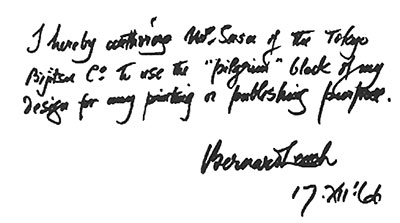 I hereby authorize Mr. Sasa of the Tokyo
Bijitsu Co. to use the "pilgrim" block of my
design for any printing or publishing purpose.
Bernard Leach
17.XII:66